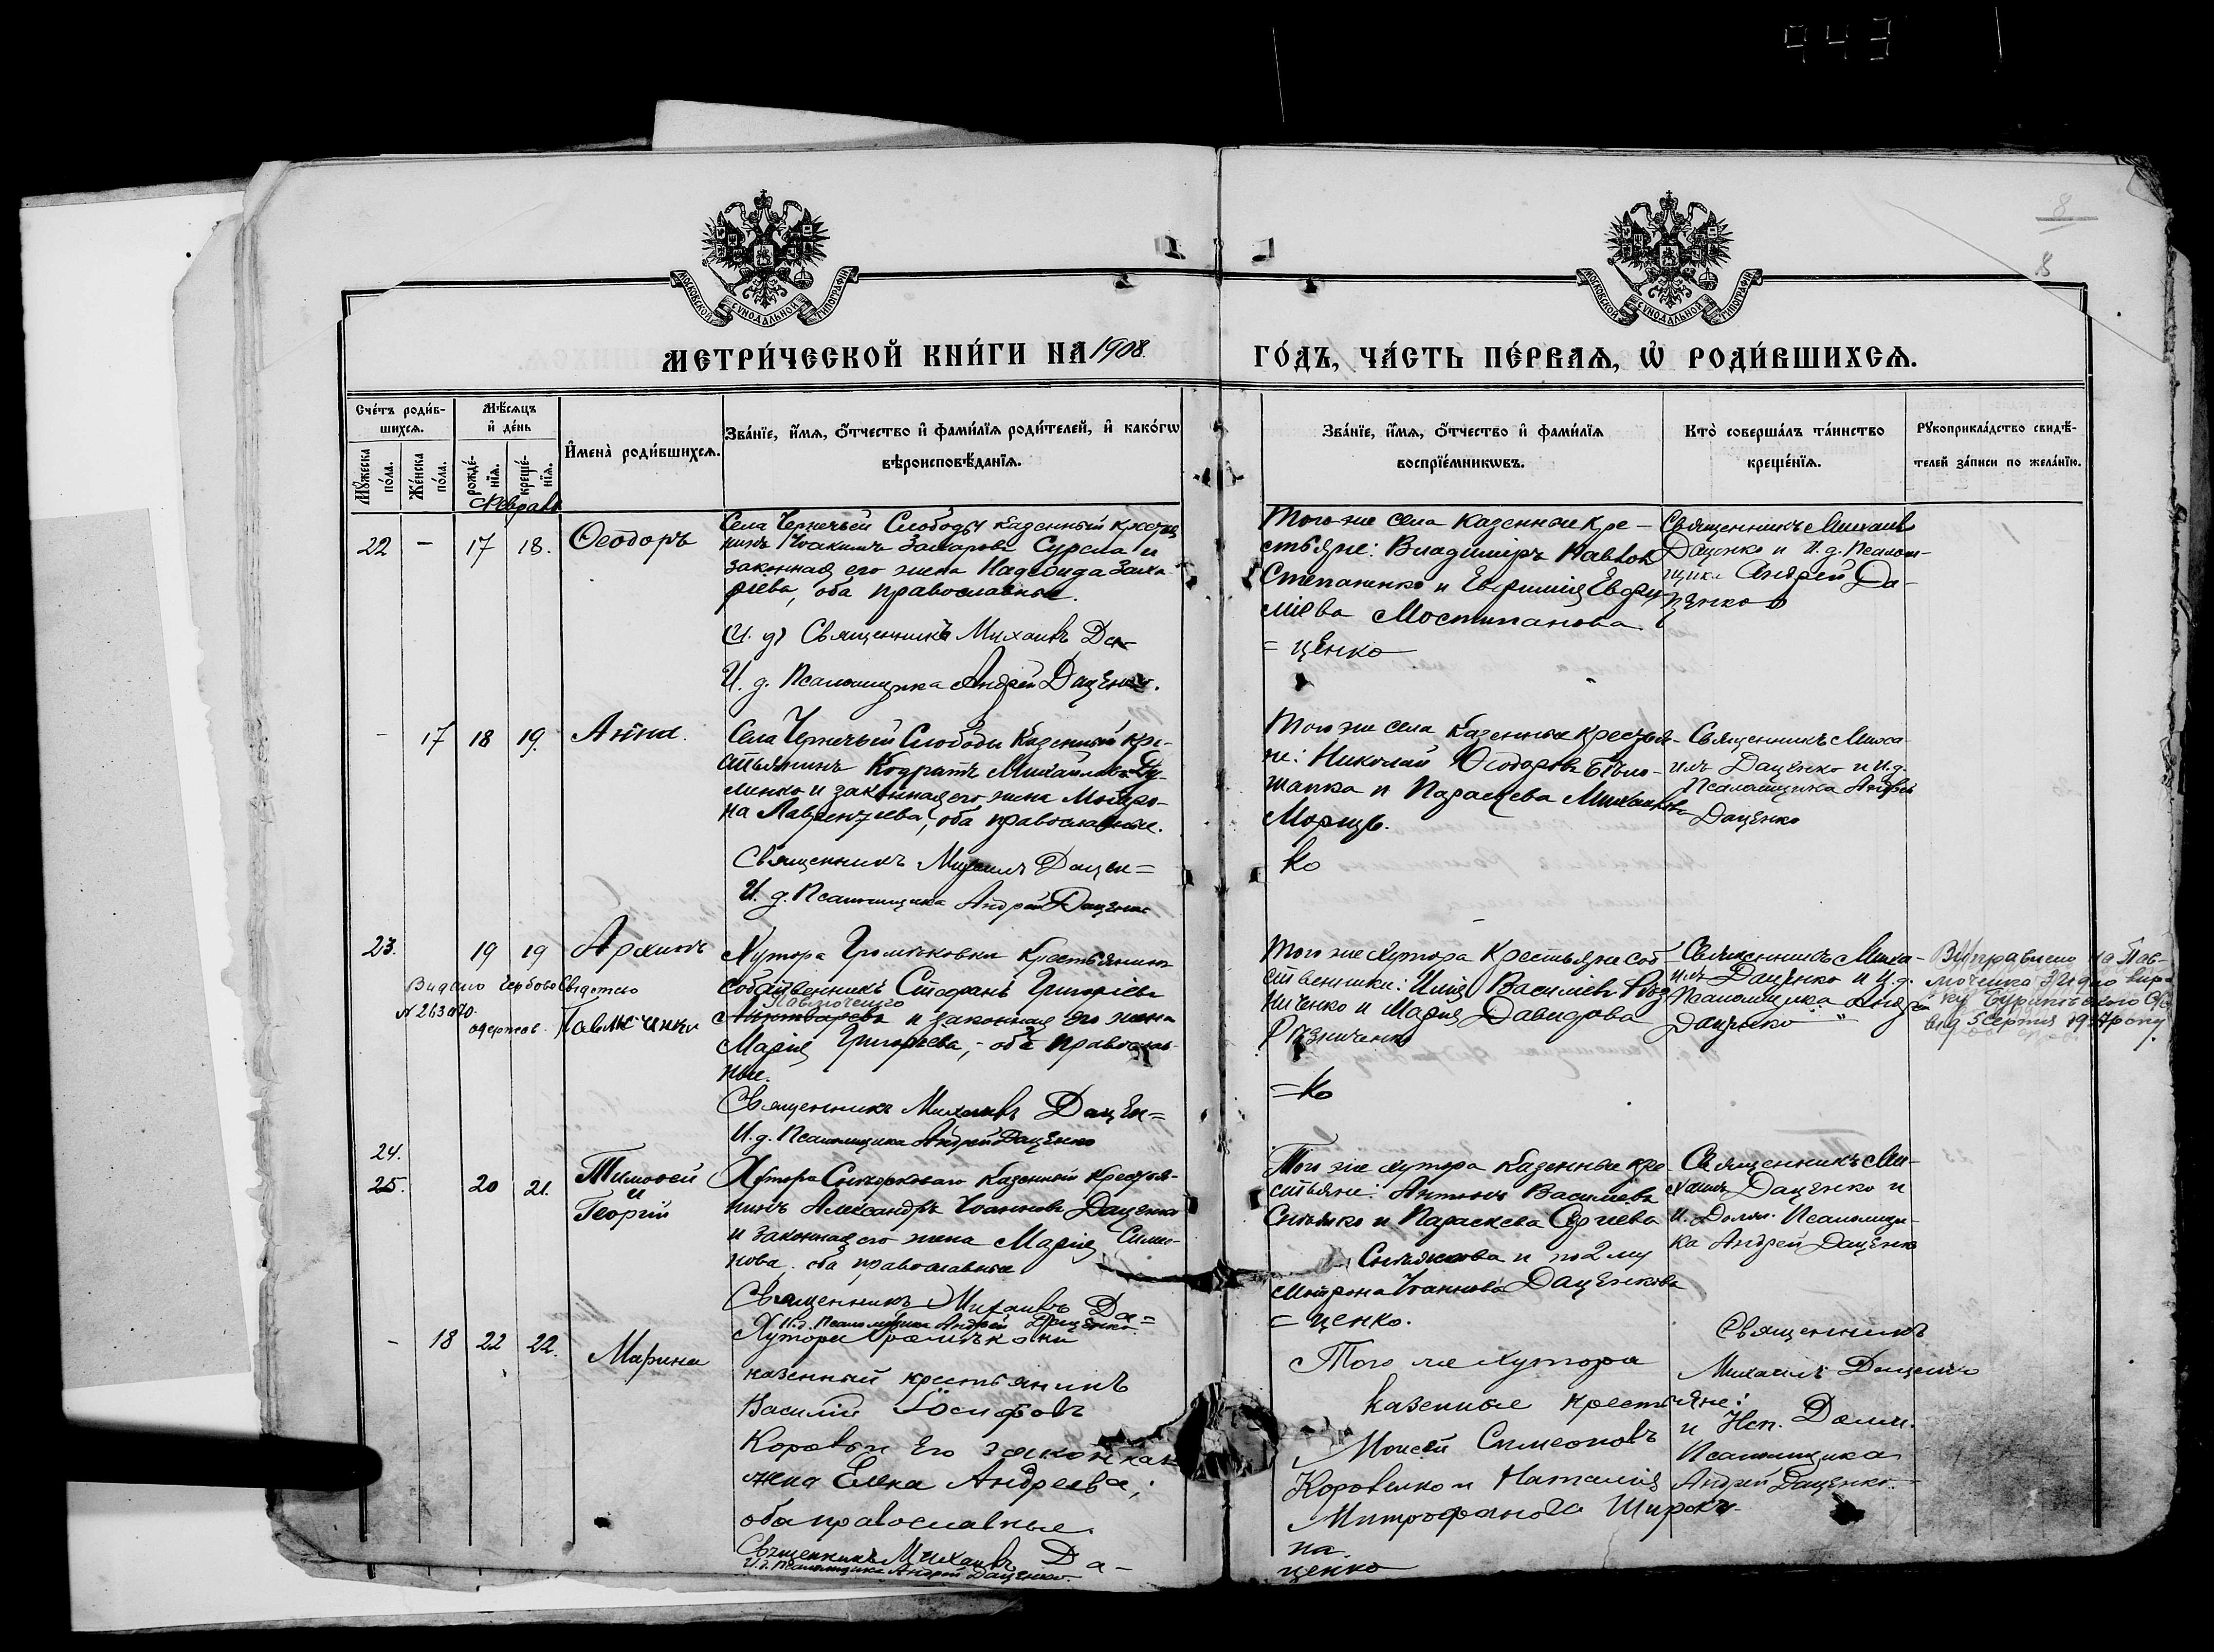 443
8
8
МОСКОВСКОЙ СѴНОДАЛЬНОЙ ТИПОГРАФІИ
МОСКОВСКОЙ СѴНОДАЛЬНОЙ ТИПОГРАФІИ
МЕТРИ́ЧЕСКОЙ КНИ́ГИ НА 1908 ГО́ДЪ, ЧА́СТЬ ПЕ́РВАѦ, Ѡ҆ РОДИ́ВШИХСѦ.
Сче́тъ роди́вшихсѧ.
Мꙋ́жеска по́ла.
Же́нска по́ла.
Мѣ́сѧцъ и҆ де́нь
рожде́нїѧ.
креще́нїѧ.
И҆мена̀ роди́вшихсѧ.
Зва́нїе, и҆́мѧ, ѻ҆́тчество и҆ фами́лїѧ роди́телей, и҆ како́гѡ вѣроисповѣ́данїѧ.
Зва́нїе, и҆́мѧ, ѻ҆́тчество и҆ фами́лїѧ воспрїе́мникѡвъ.
Кто̀ соверша́лъ та́инство креще́нїѧ.
Рꙋкоприкла́дство свидѣ́телей за́писи по жела́нїю.
Февраль
22 - 17 18. Ѳеодоръ
Села Чернечьей Слободы казенный крестья
нинъ Іоакимъ Захаровъ Сурела и
законная его жена Надежда Заха
ріева, оба православные.
(и. д) Священникъ Михаилъ Да-
И. д. Псаломщика Андрей Даценко.
Того же села казенные кре-
стьяне: Владиміръ Павлов
Степаненко и Евфимія Евфи-
міева Мостипанова
= ценко
Священникъ Михаил
Даценко и И. д. Псалом-
щика Андрей Да-
ценко
- 17 18 19. Анна.
Села Чернечьей Слободы казенный кре-
стьянинъ Кодратъ Михайловъ
ленко и законная его жена Матро-
на Лаврентіева, оба православные.
Священникъ Михаилъ Дацен=
И. д. Псаломщика Андрей Даценко
Того же села казенные крестья-
не: Николай Ѳеодоровъ Бѣло-
шапка и Параскева Михаилова
Морицъ.
ко
Священникъ Миха-
илъ Даценко и И. д.
Псаломщика Андрей
Даценко
23. 19 19 Архипъ
Видано
N 263
одержав. Павлюченко
Хутора Громяковки Крестьянинъ
собственникъ Стефанъ Григоріевъ
Павлюченко
и законная его жена
Марія Григорьева, - оба православ-
ные.
Священникъ Михаилъ Дацен=
И. д. Псаломщика Андрей Даценко
Того же Хутора Крестьяне соб-
ственники: Илія Васильевъ Рѣз
ниченко и Марія Давидова
Рѣзниченко
=ко
Священникъ Миха-
илъ Даценко и И. д.
Псаломщика Андрей
Даценко
Виправлено на Пав-
люченко
від 5 серпня 1937 року
24.
25. 20 21. Тимоѳей
и
Георгій
Хутора казенный крестья-
нинъ Александръ Іоанновъ Даценко
и законная его жена Марія Симе-
нова оба православные
Священникъ Михаилъ Да=
И. д. Псаломщика Андрей Даценко
Того же хутора казенные кре-
стьяне: Антонъ Васильевъ
и Параскева
и по 2 му
Матрона Іоаннова Даценкова
= ценко.
Священникъ Ми-
хаилъ Даценко и
И. Долж. Псаломщи-
ка Андрей Даценко
- 18 22 22. Марина
Хутора Громяковки
казенный крестьянинъ
Василій Іосифовъ
и его законная
жена Елена Андреева;
оба православные.
Священникъ Михаилъ Да-
И. д. Псаломщика Андрей Даценко.
Того же хутора
казенные крестьяне:
Моисей Симеоновъ
Коровенко и Наталія
Митрофанова Широки-
на
ценко
Священникъ
Михаилъ Даценко
и Исп. Долж.
Псаломщика
Андрей Даценко.